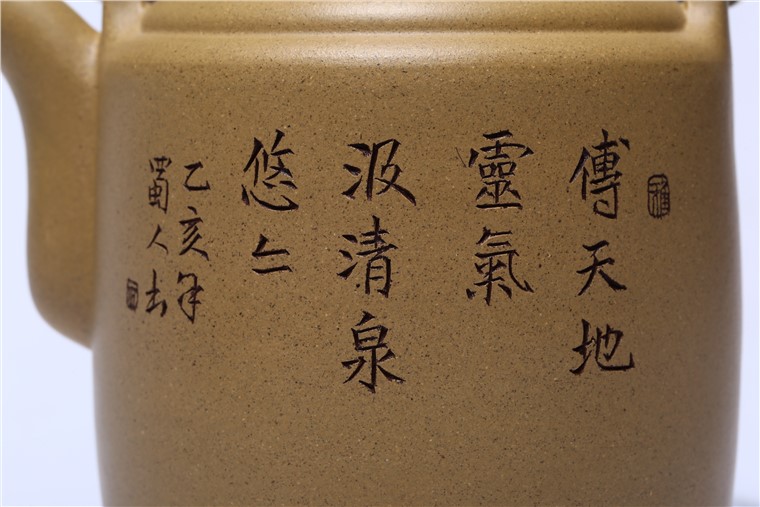 傅天地
靈氣
汲清泉
悠々
乙亥年
蜀人